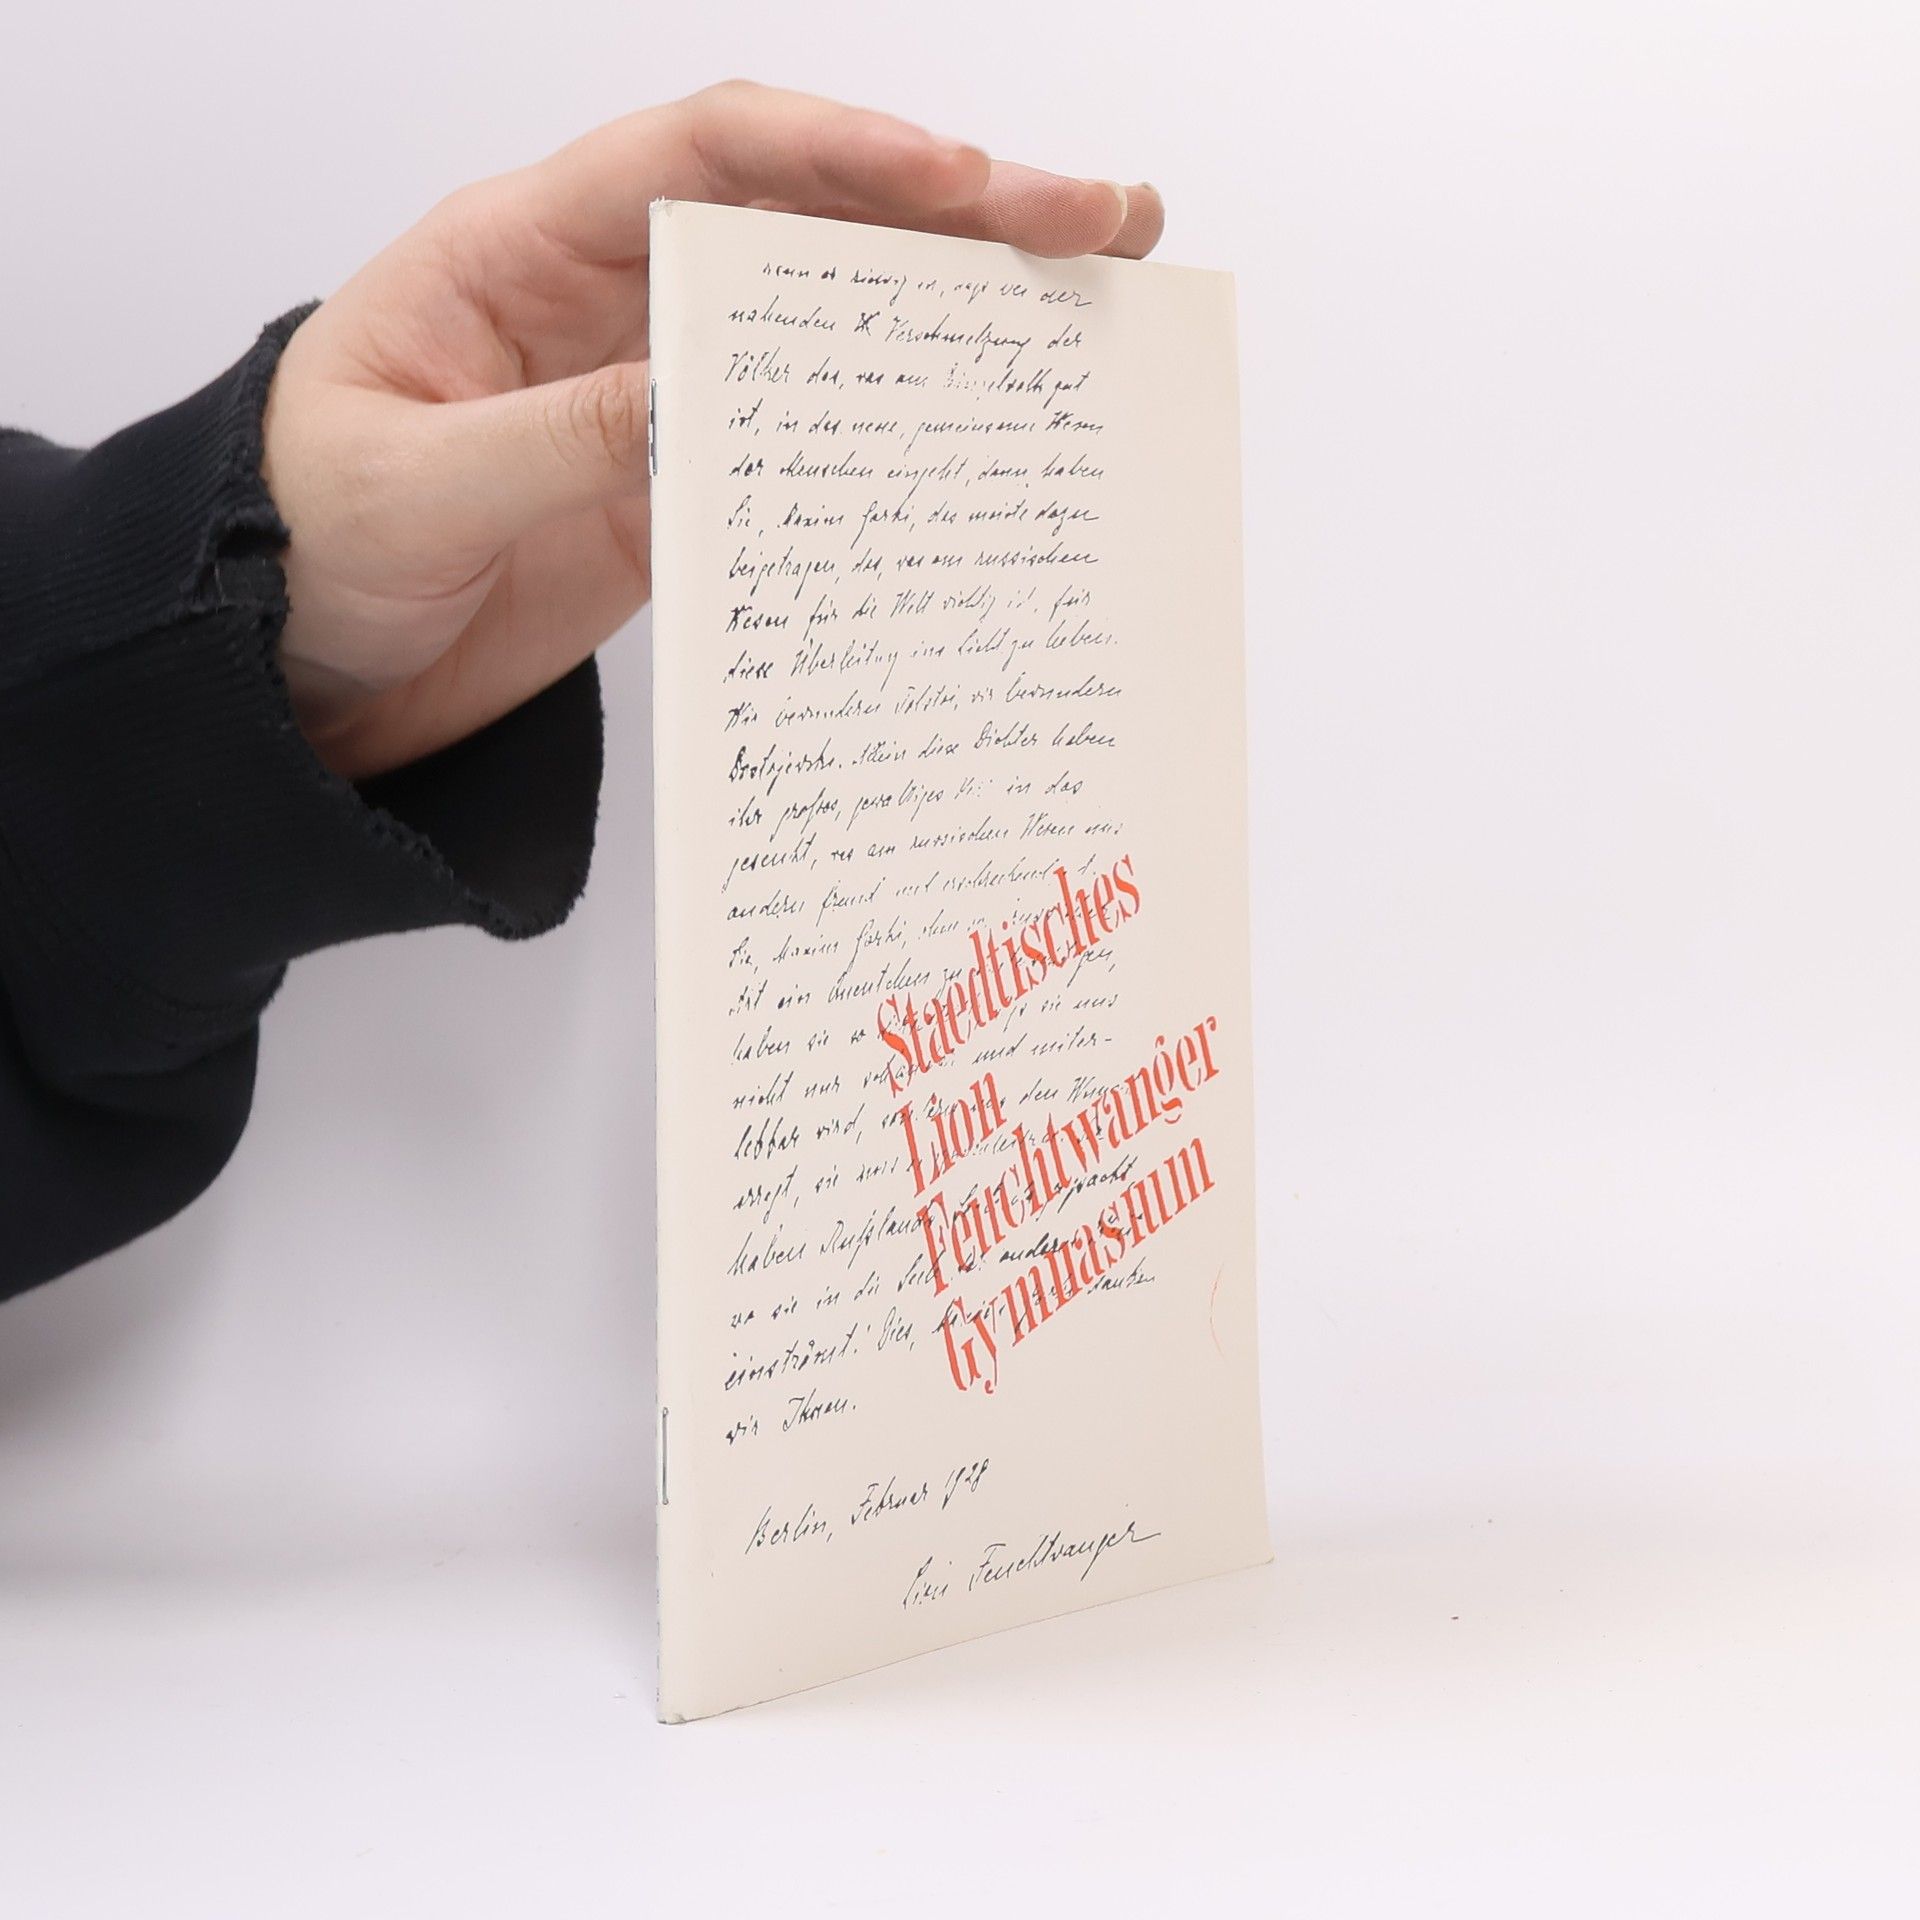 wenn es richtig ist, dass bei der
nahenden Verschmelzung der
Völker das, was am Einzelvolk gut
ist, in das neue, gemeinsame Wesen
der Menschen eingeht, dann haben
Sie, Maxim Gorki, das meiste dazu
beigetragen, das, was am russischen
Wesen für die Welt wichtig ist, für
diese Überleitung ins Licht zu heben.
Wir bewundern Tolstoi, wir bewundern
Dostojewski. Allein diese Dichter haben
ihr großes, gewaltiges in das
gesenkt, was am russischen Wesen uns
andern fremd und erschreckend ist.
Sie, Maxim Gorki, ohne
Art ein Quentchen zu
haben sie so sie uns
nicht nur und miter-
lebbar wird, sondern uns den Wunsch
erregt, sie
haben Rußlands gemacht
wo sie in die Seele der anderen
einströmt! Dies, danken
wir Ihnen.
Berlin, Februar 1928
Lion Feuchtwanger
Staedtisches
Lion
Feuchtwanger
Gymnasium